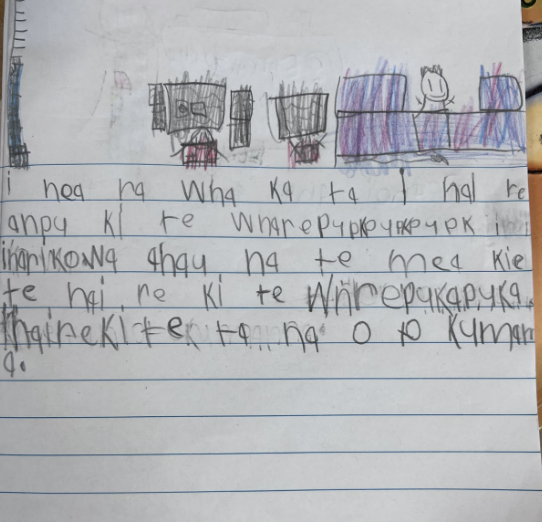 i nea na wha ka ta i hai re
anpu ki te wharepupkpukpupk i
ihariKoNa ahau na te mea kie
te hai re ki te Wnrepukapuka.
thaireki te ta na o to kuman
a.